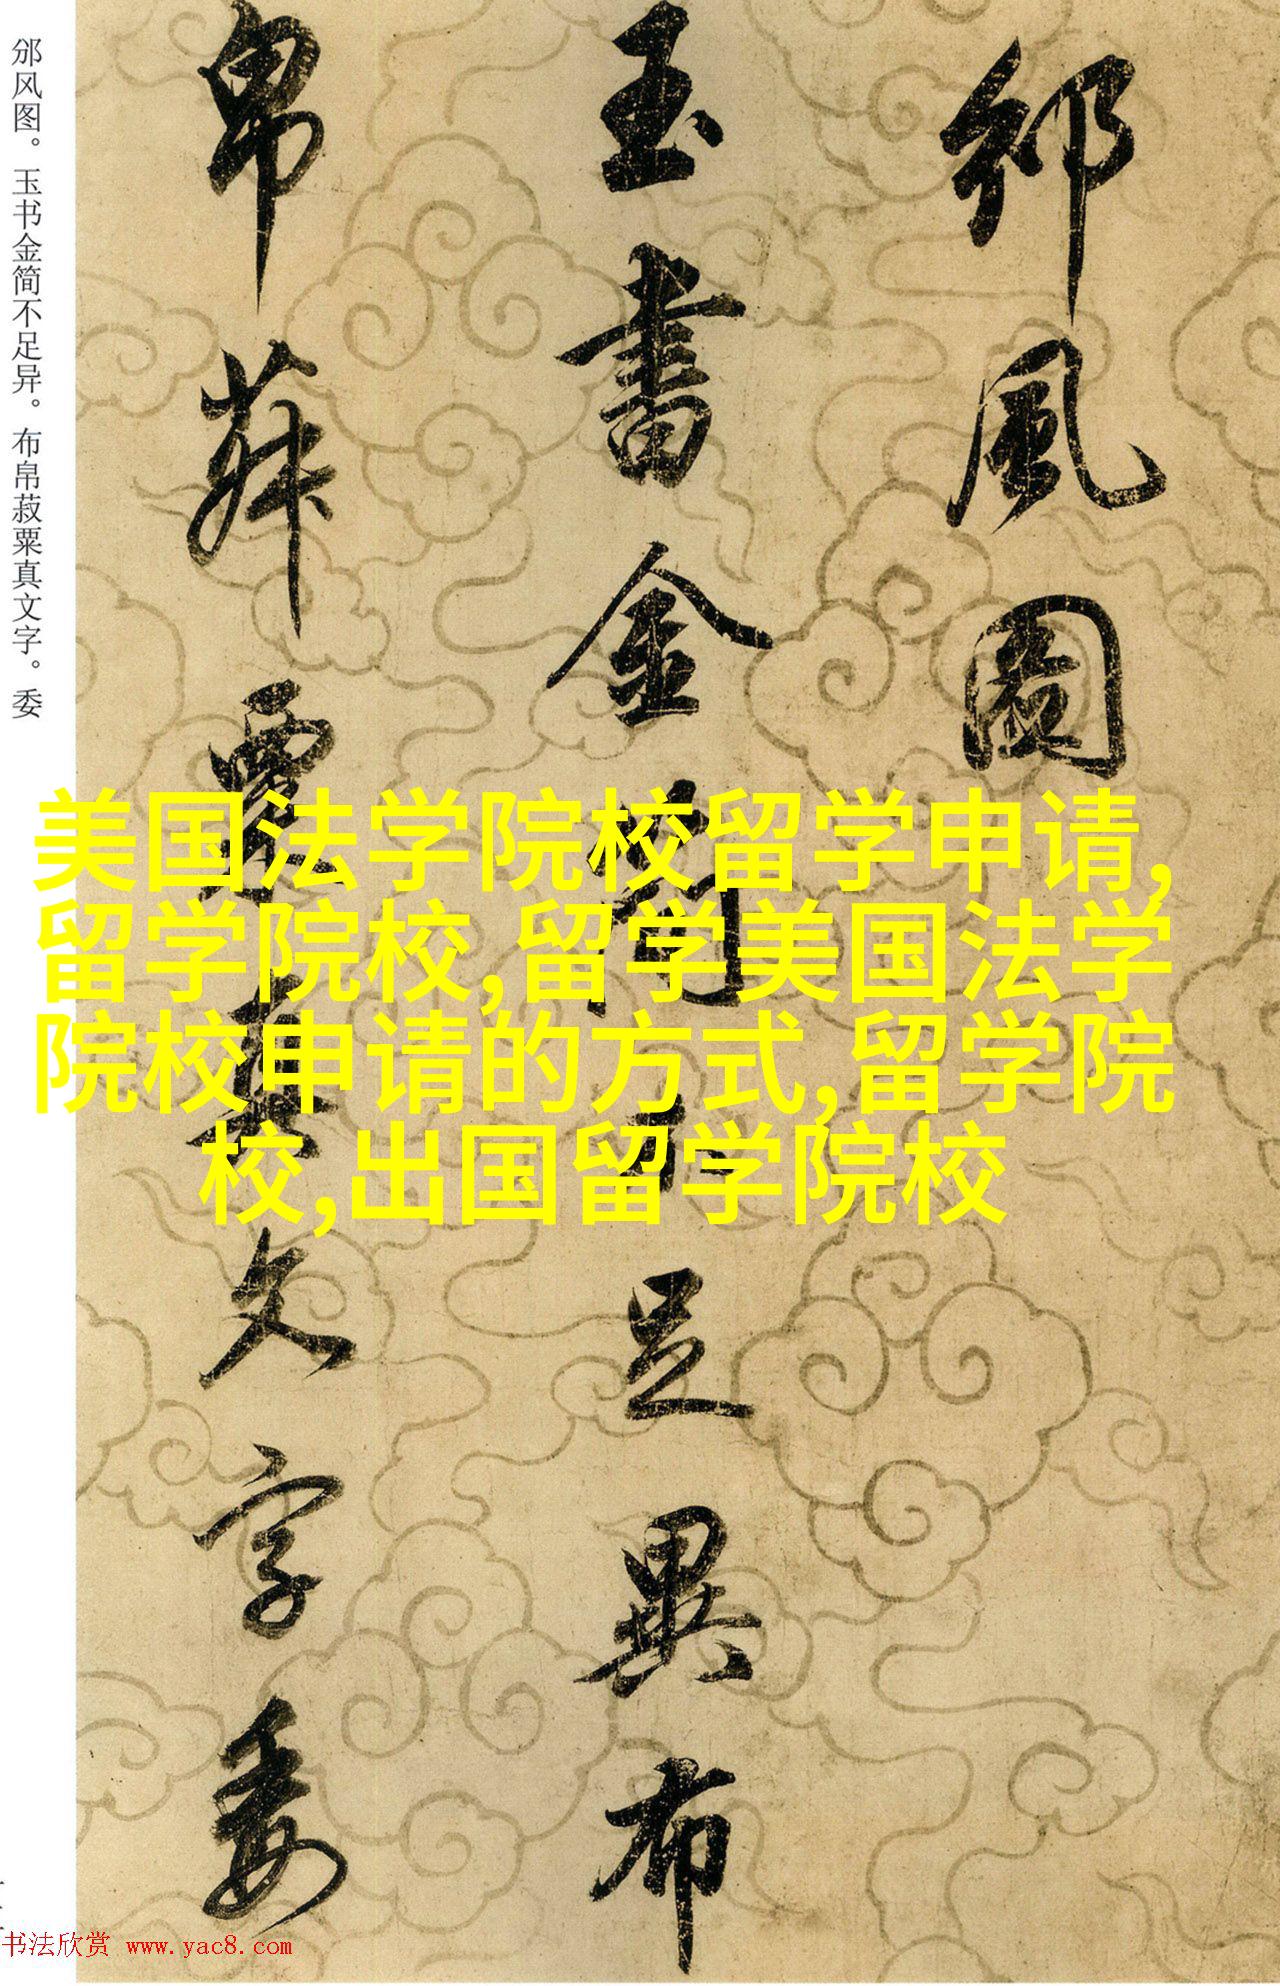 邠風圖
玉書金簡不足異布
帛菽粟真文字委
邠风图。玉书金简不足异。布帛菽粟真文字。委
美国法学院校留学申请,
留学院校,留学美国法学
院校申请的方式,留学院
校,出国留学院校
书法欣赏 www.yac8.com